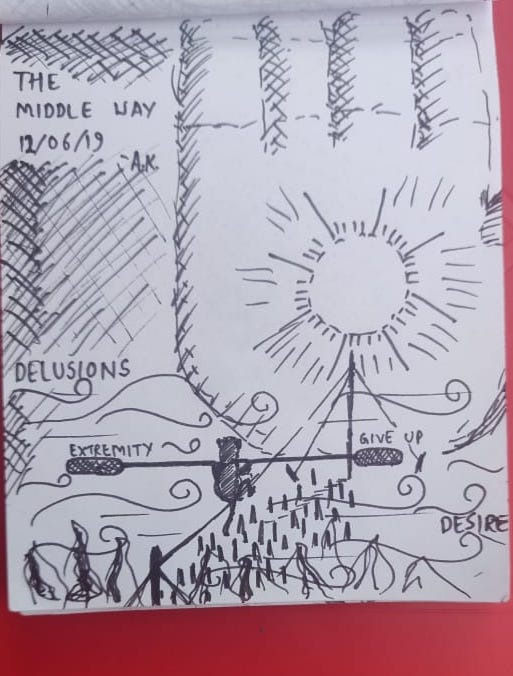 THE
MIDDLE WAY
12/06/19
-A.K
DELUSIONS
EXTREMITY
GIVE UP
DESIRE